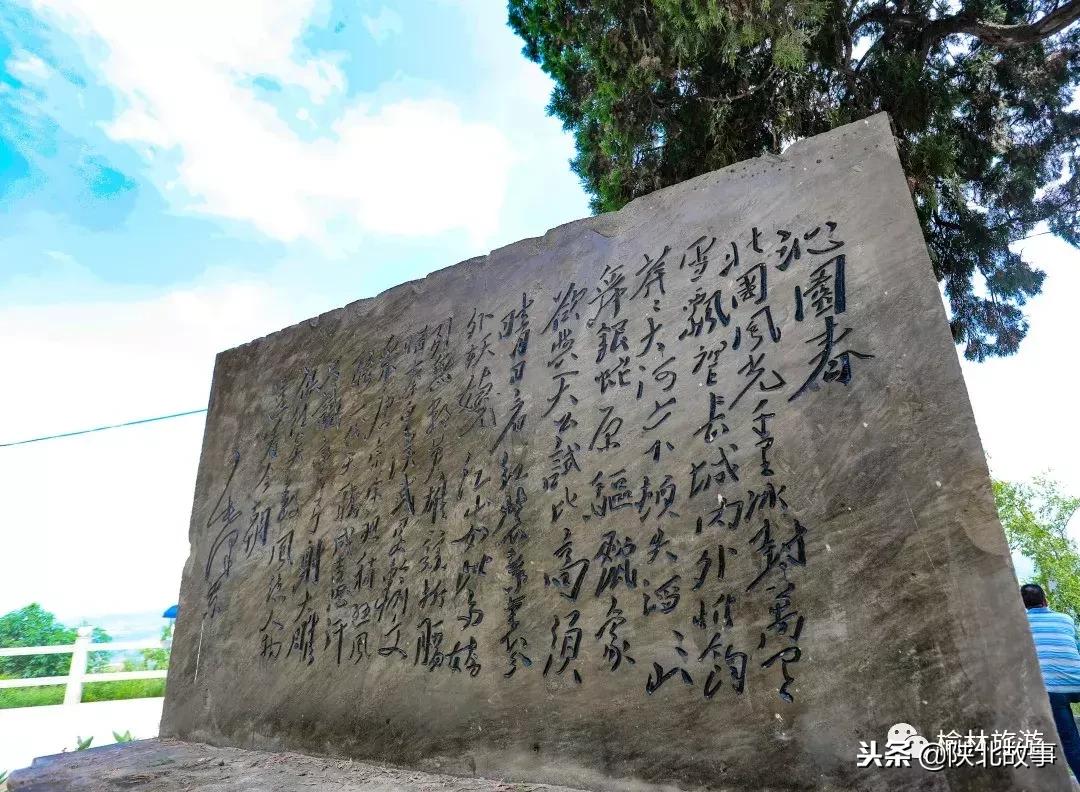 沁園春
北國風光千里冰封萬里
雪飄望長城內外惟餘
莽〻大河上下頓失滔〻山
舞銀蛇原驅臘象
欲與天公試比高須
晴日看紅裝素裹分
外妖嬈江山如此多嬌
引無數英雄競折腰
惜秦皇漢武略輸文
采唐宗宋祖稍遜風
騷一代天驕成吉思汗
只識彎弓射大雕
俱往矣數風流人物
還看今朝
毛澤東
榆林旅游
头条@陕北故事